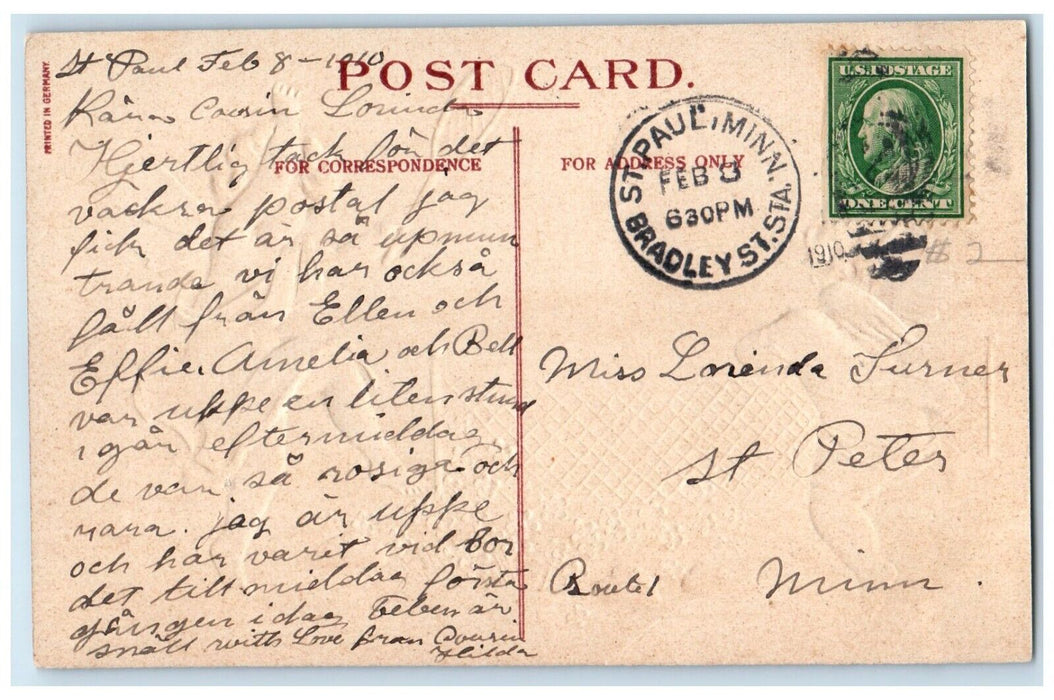 PRINTED IN GERMANY
St Paul Feb 8 - 1910
POST CARD.
Kära Cousin Lorinda
Hjertlig tack för det
FOR CORRESPONDENCE
vackra postal jag
fick det är så upmun
trande vi har också
fått från Ellen och
Effie. Amelia och Bell
var uppe en liten stund
igår eftermiddag
de var så rosiga och
rara. jag är uppe
och har varit vid bor
det till middag första
gången idag
är
snäll with Love from Cousin
Hilda
FOR ADDRESS ONLY
ST. PAUL, MINN.
FEB 8
630PM
BRADLEY ST. STA.
1910
U.S. POSTAGE
ONE CENT
# 2
Miss Lorinda Turner
St Peter
Route 1 Minn.